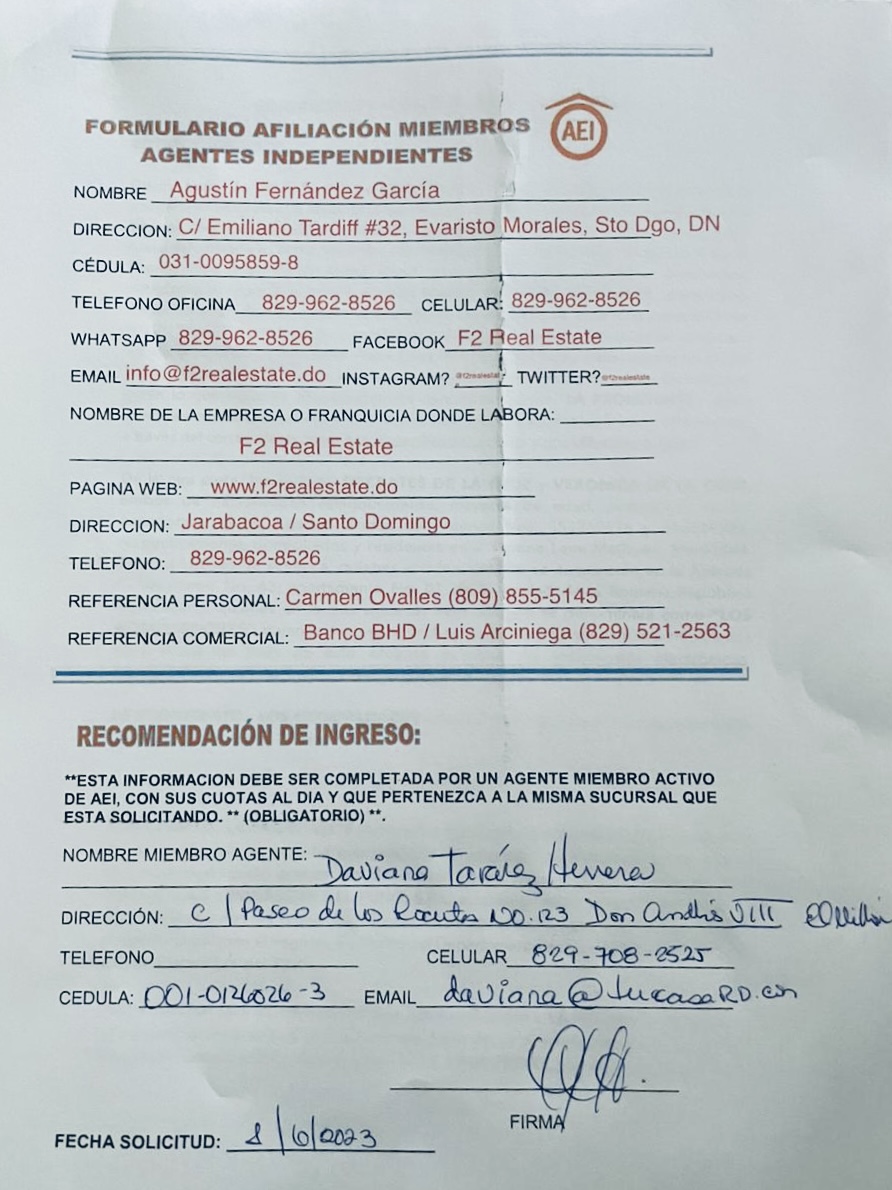 FORMULARIO AFILIACIÓN MIEMBROS
AGENTES INDEPENDIENTES
AEI
NOMBRE Agustín Fernández García
DIRECCION: C/ Emiliano Tardiff #32, Evaristo Morales, Sto Dgo, DN
CÉDULA: 031-0095859-8
TELEFONO OFICINA 829-962-8526 CELULAR: 829-962-8526
WHATSAPP 829-962-8526 FACEBOOK F2 Real Estate
EMAIL info@f2realestate.do INSTAGRAM? @f2realestat TWITTER? @f2realestate
NOMBRE DE LA EMPRESA O FRANQUICIA DONDE LABORA:
F2 Real Estate
PAGINA WEB: www.f2realestate.do
DIRECCION: Jarabacoa / Santo Domingo
TELEFONO: 829-962-8526
REFERENCIA PERSONAL: Carmen Ovalles (809) 855-5145
REFERENCIA COMERCIAL: Banco BHD / Luis Arciniega (829) 521-2563
RECOMENDACIÓN DE INGRESO:
**ESTA INFORMACION DEBE SER COMPLETADA POR UN AGENTE MIEMBRO ACTIVO
DE AEI, CON SUS CUOTAS AL DIA Y QUE PERTENEZCA A LA MISMA SUCURSAL QUE
ESTA SOLICITANDO. ** (OBLIGATORIO) **.
NOMBRE MIEMBRO AGENTE: Daviana Tavárez Herrera
DIRECCIÓN: C/ Paseo de los Locutores No. 123 Don Andrés VIII El Millón
TELEFONO CELULAR 829-708-2525
CEDULA: 001-0126026-3 EMAIL daviana@tucasaRD.com
FIRMA
FECHA SOLICITUD: 8/6/2023